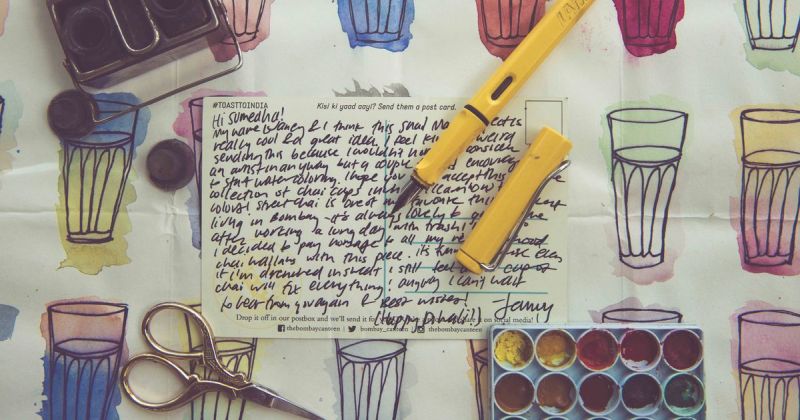 LAMY
#TOASTTOINDIA
Kisi ki yaad aayi? Send them a post card.
Hi Sumedha!
My name is & I think this Snail Ma is
really cool & a great idea. I feel weird
sending this because I wouldn't consider
an artist in anyway but a couple encourag
to start watercoloring. I hope you accept this
collection of chai cups in
colors! Street chai is one of my favorite thi
living in Bombay - it's always lovely to
after working a long day with trash!
I decided to pay homage to all my
chai wallahs with this piece. Its
if I'm drenched in sweat, I still feel a cup of
chai will fix everything! Anyway I can't wait
to hear from you again & best wishes!
(Happy Diwali!)
Drop it off in our postbox and we'll send it for on social media!
thebombaycanteen | bombay_canteen | thebombaycanteen